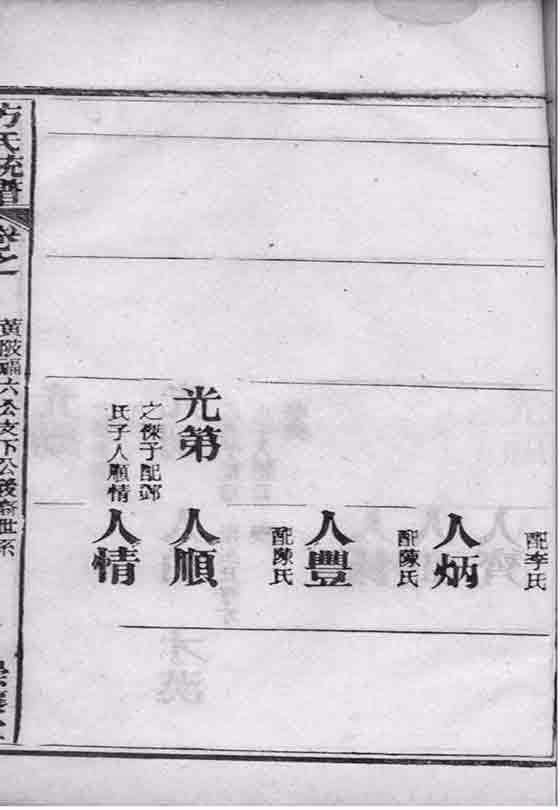 配李氏
人炳
配陳氏
人豐
配陳氏
光第
之傑子配鄧
氏子人順情
人順
人情
方氏統譜
卷之
黄陂福六公支下公後裔世系